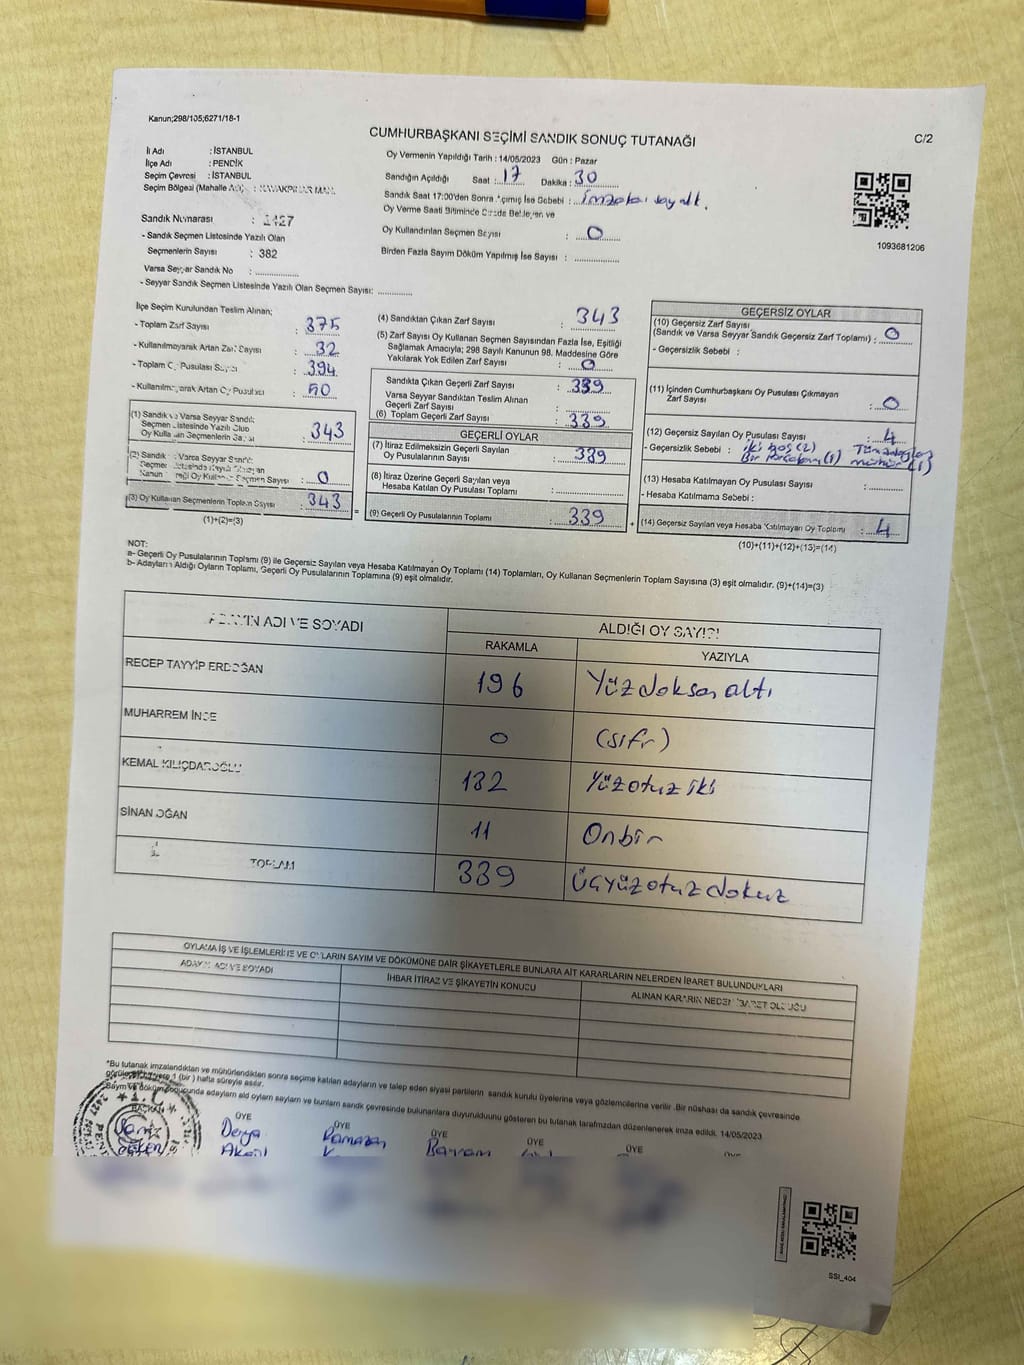 Kanun;298/105;6271/18-1
CUMHURBAŞKANI SEÇİMİ SANDIK SONUÇ TUTANAĞI
C/2
İl Adı : İSTANBUL
İlçe Adı : PENDİK
Seçim Çevresi : İSTANBUL
Seçim Bölgesi (Mahalle Adı) : KAVAKPINAR MAH.
Sandık Numarası : 2427
- Sandık Seçmen Listesinde Yazılı Olan
Seçmenlerin Sayısı : 382
Varsa Seyyar Sandık No : ............
- Seyyar Sandık Seçmen Listesinde Yazılı Olan Seçmen Sayısı: ............
Oy Vermenin Yapıldığı Tarih : 14/05/2023 Gün : Pazar
Sandığın Açıldığı Saat : 17 Dakika : 30
Sandık Saat 17:00'den Sonra Açılmış İse Sebebi :
Oy Verme Saati Bitiminde Sırada Bekleyen ve
Oy Kullandırılan Seçmen Sayısı : 0
Birden Fazla Sayım Döküm Yapılmış İse Sayısı : ............
1093681206
İlçe Seçim Kurulundan Teslim Alınan;
- Toplam Zarf Sayısı : 375
- Kullanılmayarak Artan Zarf Sayısı : 32
- Toplam Oy Pusulası Sayısı : 394
- Kullanılmayarak Artan Oy Pusulası : 50
(1) Sandık ve Varsa Seyyar Sandık
Seçmen Listesinde Yazılı Olup
Oy Kullanan Seçmenlerin Sayısı : 343
(2) Sandık ve Varsa Seyyar Sandık
Seçmen Listesinde Yazılı Olmayan
Kanun Gereği Oy Kullanan Seçmen Sayısı : 0
(3) Oy Kullanan Seçmenlerin Toplam Sayısı : 343
(1)+(2)=(3)
(4) Sandıktan Çıkan Zarf Sayısı : 343
(5) Zarf Sayısı Oy Kullanan Seçmen Sayısından Fazla İse, Eşitliği
Sağlamak Amacıyla; 298 Sayılı Kanunun 98. Maddesine Göre
Yakılarak Yok Edilen Zarf Sayısı : 0
Sandıkta Çıkan Geçerli Zarf Sayısı : 339
Varsa Seyyar Sandıktan Teslim Alınan
Geçerli Zarf Sayısı : ............
(6) Toplam Geçerli Zarf Sayısı : 339
GEÇERLİ OYLAR
(7) İtiraz Edilmeksizin Geçerli Sayılan
Oy Pusulalarının Sayısı : 339
(8) İtiraz Üzerine Geçerli Sayılan veya
Hesaba Katılan Oy Pusulası Toplamı : ............
(9) Geçerli Oy Pusulalarının Toplamı : 339
GEÇERSİZ OYLAR
(10) Geçersiz Zarf Sayısı
(Sandık ve Varsa Seyyar Sandık Geçersiz Zarf Toplamı) : 0
- Geçersizlik Sebebi :
(11) İçinden Cumhurbaşkanı Oy Pusulası Çıkmayan
Zarf Sayısı : 0
(12) Geçersiz Sayılan Oy Pusulası Sayısı : 4
- Geçersizlik Sebebi : iki boş (2) Tüm adaylara
Bir (1) mühür (1)
(13) Hesaba Katılmayan Oy Pusulası Sayısı : ............
- Hesaba Katılmama Sebebi :
(14) Geçersiz Sayılan veya Hesaba Katılmayan Oy Toplamı : 4
(10)+(11)+(12)+(13)=(14)
NOT:
a- Geçerli Oy Pusulalarının Toplamı (9) ile Geçersiz Sayılan veya Hesaba Katılmayan Oy Toplamı (14) Toplamları, Oy Kullanan Seçmenlerin Toplam Sayısına (3) eşit olmalıdır. (9)+(14)=(3)
b- Adayların Aldığı Oyların Toplamı, Geçerli Oy Pusulalarının Toplamına (9) eşit olmalıdır.
ADAYIN ADI VE SOYADI
ALDIĞI OY SAYISI
RAKAMLA YAZIYLA
RECEP TAYYİP ERDOĞAN 196 Yüzdoksanaltı
MUHARREM İNCE 0 (sıfır)
KEMAL KILIÇDAROĞLU 132 Yüzotuz iki
SİNAN OĞAN 11 Onbir
TOPLAM 339 Üçyüzotuzdokuz
OYLAMA İŞ VE İŞLEMLERİNE VE OYLARIN SAYIM VE DÖKÜMÜNE DAİR ŞİKAYETLERLE BUNLARA AİT KARARLARIN NELERDEN İBARET BULUNDUKLARI
ADAYIN ADI VE SOYADI İHBAR İTİRAZ VE ŞİKAYETİN KONUSU ALINAN KARARIN NEDEN İBARET OLDUĞU
*Bu tutanak imzalandıktan ve mühürlendikten sonra seçime katılan adayların ve talep eden siyasi partilerin sandık kurulu üyelerine veya gözlemcilerine verilir .Bir nüshası da sandık çevresinde
görülebilir yere 1 (bir) hafta süreyle asılır.
Sayım ve döküm sonucunda adayların aldı oyların sayların ve bunların sandık çevresinde bulunanlara duyurulduunu gösteren bu tutanak tarafmızdan düzenlenerek imza edildi. 14/05/2023
BAŞKAN ÜYE ÜYE ÜYE ÜYE ÜYE ÜYE
Derya Ramazan Bayram
SSI_404